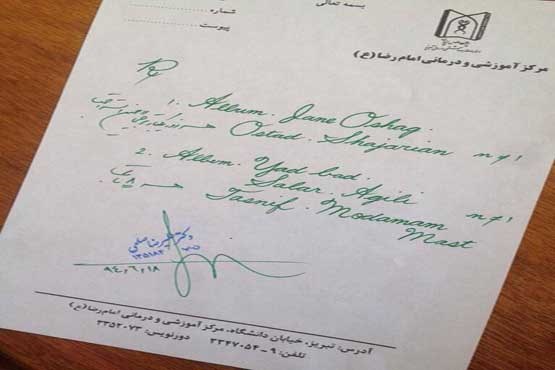 بسمه تعالی
شماره
پیوست
مرکز آموزشی و درمانی امام رضا (ع)
1. Album. Jane Oshag.
Ostad. Shajarian n≠1
2. Album. Yad bad.
Salar. Agili n≠1
Tasnif. Modamam
Mast
دکتر علیرضا
۱۳۵۱۸۳
۹۴٫۶٫۱۸
آدرس: تبریز، خیابان دانشگاه، مرکز آموزشی و درمانی امام رضا (ع)
تلفن: ۹ - ۳۳۴۷۰۵۴ دورنویس: ۳۳۵۲۰۷۳